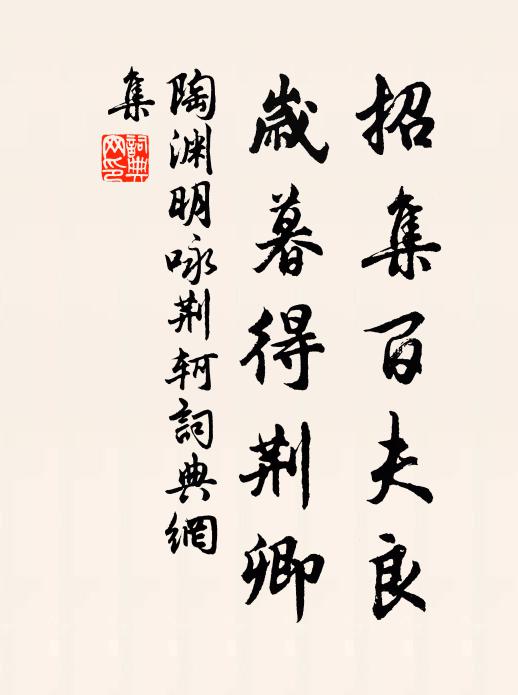 招集百夫良
歲暮得荆卿
陶渊明咏荆轲詞典網
集
詞典網印